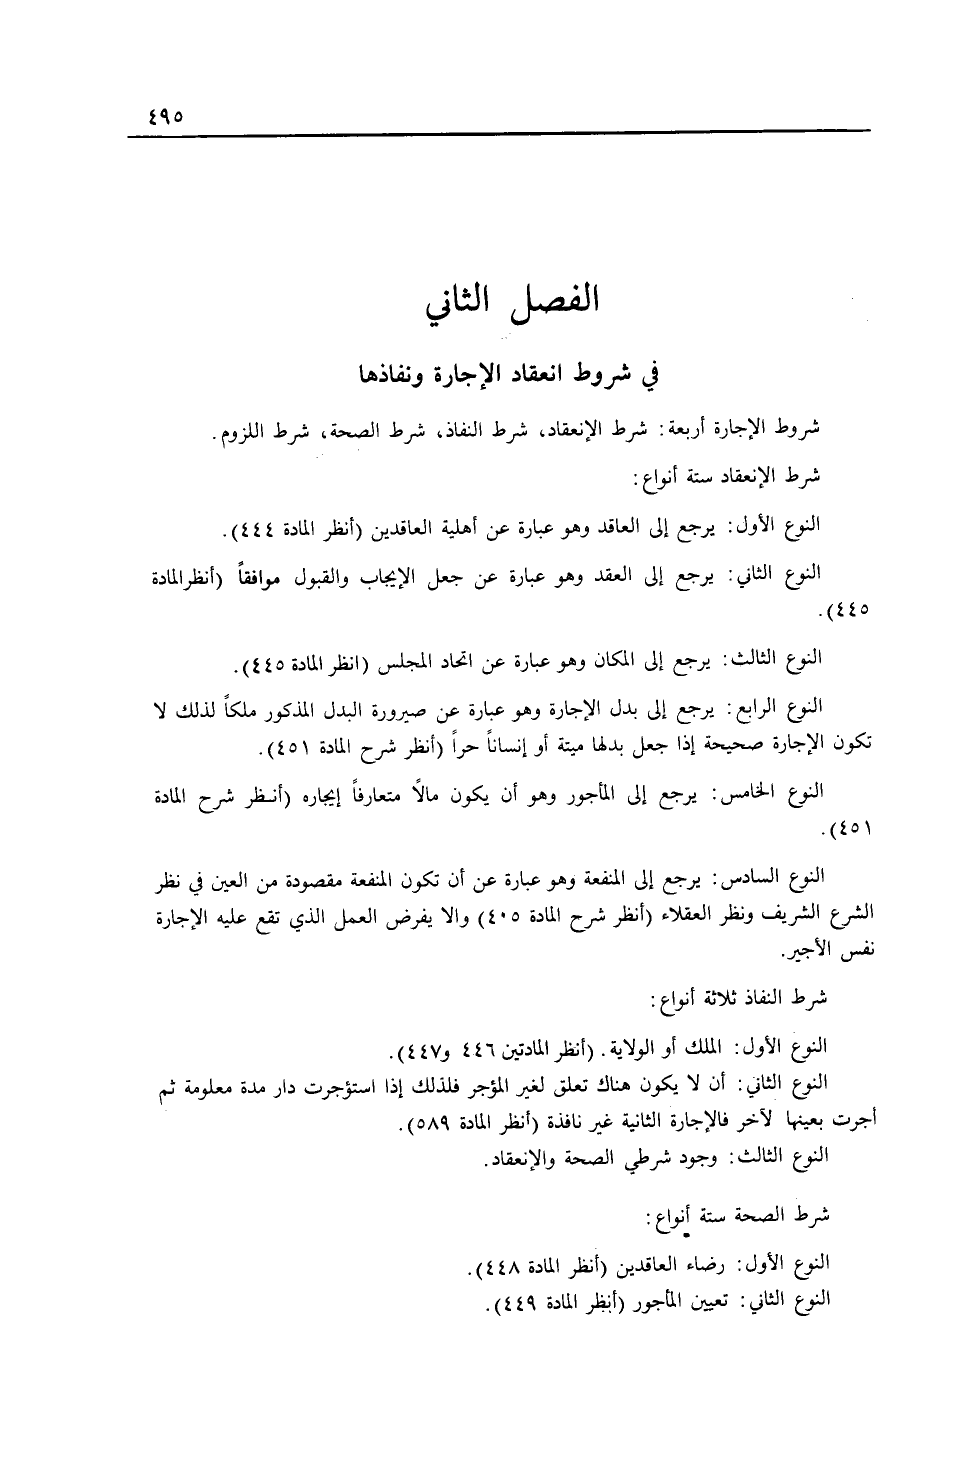 ٤٩٥
الفصل الثاني
في شروط انعقاد الإجارة ونفاذها
شروط الإجارة أربعة: شرط الإنعقاد، شرط النفاذ، شرط الصحة، شرط اللزوم.
شرط الإنعقاد ستة أنواع:
النوع الأول: يرجع إلى العاقد وهو عبارة عن أهلية العاقدين (أنظر المادة ٤٤٤).
النوع الثاني: يرجع إلى العقد وهو عبارة عن جعل الإيجاب والقبول موافقاً (أنظرالمادة
٤٤٥).
النوع الثالث: يرجع إلى المكان وهو عبارة عن اتحاد المجلس (انظر المادة ٤٤٥).
النوع الرابع: يرجع إلى بدل الإجارة وهو عبارة عن صيرورة البدل المذكور ملكاً لذلك لا
تكون الإجارة صحيحة إذا جعل بدلها ميتة أو إنساناً حراً (أنظر شرح المادة ٤٥١).
النوع الخامس: يرجع إلى المأجور وهو أن يكون مالًا متعارفاً إيجاره (أنظر شرح المادة
٤٥١).
النوع السادس: يرجع إلى المنفعة وهو عبارة عن أن تكون المنفعة مقصودة من العين في نظر
الشرع الشريف ونظر العقلاء (أنظر شرح المادة ٤٠٥) والا يفرض العمل الذي تقع عليه الإجارة
نفس الأجير.
شرط النفاذ ثلاثة أنواع:
النوع الأول: الملك أو الولاية. (أنظر المادتين ٤٤٦ و٤٤٧).
النوع الثاني: أن لا يكون هناك تعلق لغير المؤجر فلذلك إذا استؤجرت دار مدة معلومة ثم
أجرت بعينها لآخر فالإجارة الثانية غير نافذة (أنظر المادة ٥٨٩).
النوع الثالث: وجود شرطي الصحة والإنعقاد.
شرط الصحة ستة أنواع:
النوع الأول: رضاء العاقدين (أنظر المادة ٤٤٨).
النوع الثاني: تعيين المأجور (أنظر المادة ٤٤٩).